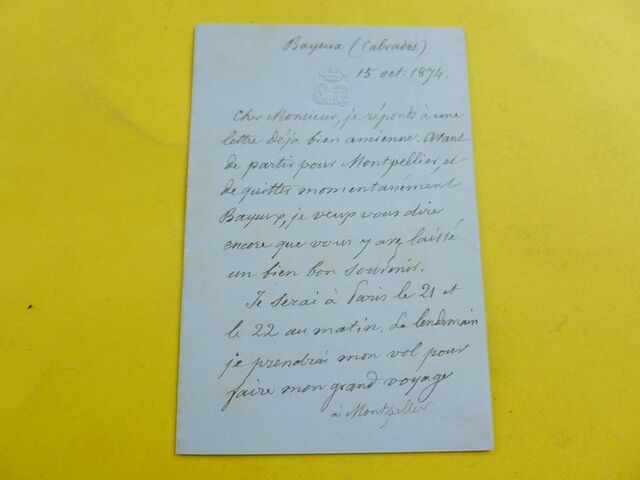 Bayeux (Calvados.)
15 oct. 1874.
Cher Monsieur, je réponds à une
lettre déjà bien ancienne. Avant
de partir pour Montpellier, et
de quitter momentanément
Bayeux, je veux vous dire
encore que vous y avez laissé
un bien bon souvenir.
Je serai à Paris le 21 et
le 22 au matin. Le lendemain
je prendrai mon vol pour
faire mon grand voyage
à Montpellier